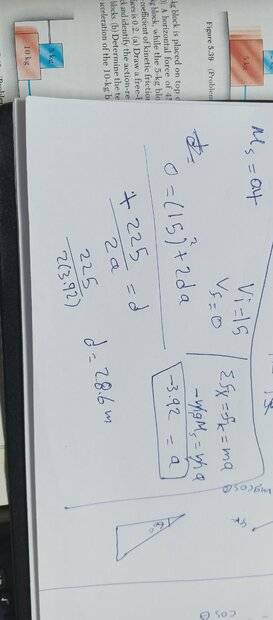 Figure 5.39 (Problem
5 kg
-kg block is placed on top o
). A horizontal force of 45
g block, while the 5-kg blo
coefficient of kinetic friction
faces is 0.2. (a) Draw a free-b
ck and identify the action-re
locks. (b) Determine the te
acceleration of the 10-kg b
10 kg
Vi = 15
Vf = 0
ΣFx = -fk = ma
-3.92 = a
0 = (15)² + 2da
+ 225 / 2a = d
225 / 2(3.92)
d = 28.6 m
mg cosθ
cosθ